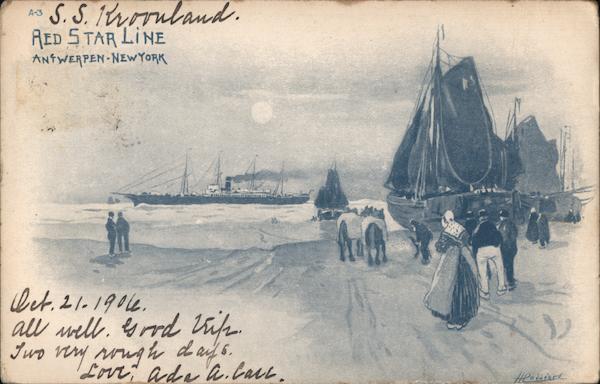 A-3 S.S. Kroonland.
RED STAR LINE
ANTWERPEN-NEWYORK
Oct. 21. 1906.
All well. Good Trip.
Two very rough days.
Love, Ada A.